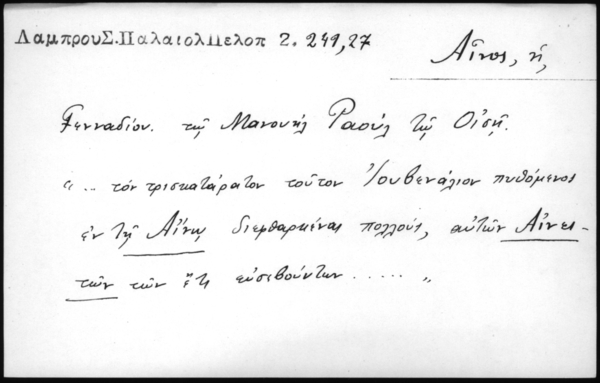 ΛαμπρουΣ.ΠαλαιολΠελοπ 2. 249,27
Αἶνος, ἡ,
Γενναδίου. τῷ Μανουὴλ Ραοὺλ τῷ Οἰσῇ.
"... τὸν τρισκατάρατον τοῦτον Ἰουβενάλιον πυθόμενος
ἐν τῇ Αἴνῳ διεφθαρκέναι πολλούς, αὐτῶν Αἰνει-
τῶν τῶν ἔτι εὐσεβούντων ..... "